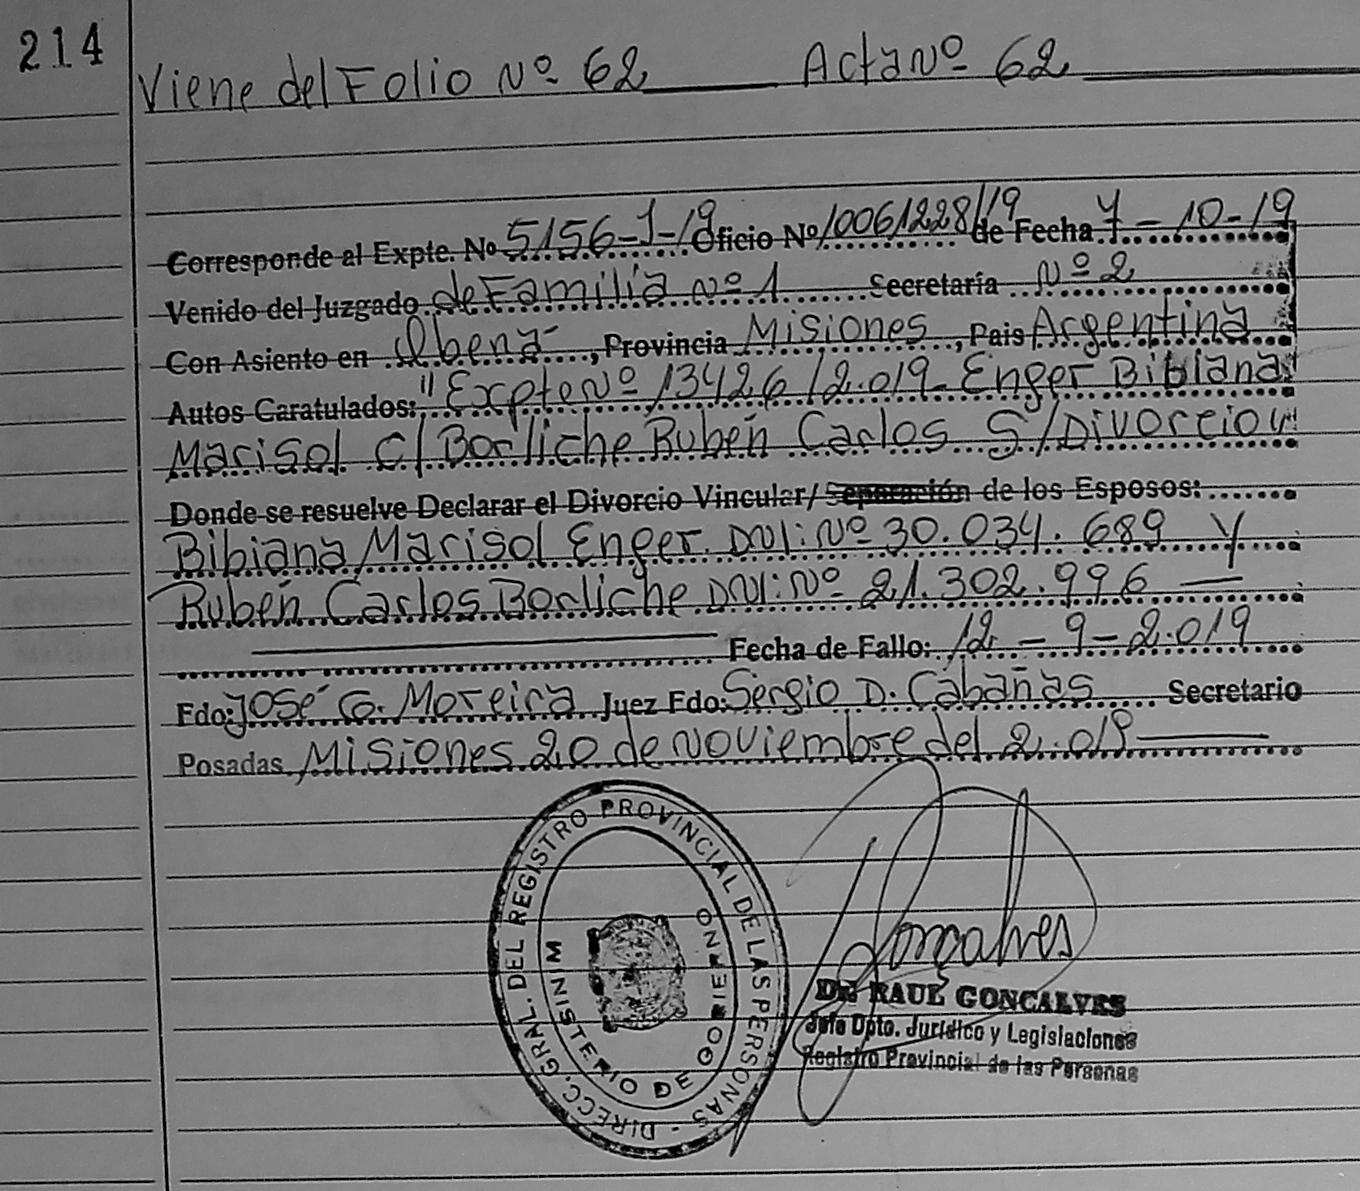 214
Viene del Folio Nº 62 Acta Nº 62
Corresponde al Expte. Nº 5156-J-19 Oficio Nº 10061228/19 de Fecha 7-10-19
Venido del Juzgado de Familia Nº 1 Secretaría Nº 2
Con Asiento en Oberá, Provincia Misiones, Pais Argentina
Autos Caratulados: "Expte Nº 13426/2.019- Enger Bibiana
Marisol c/ Borliche Rubén Carlos S/Divorcio"
Donde se resuelve Declarar el Divorcio Vincular/ Separación de los Esposos:
Bibiana Marisol Enger. DNI: Nº 30.034.689 y
Rubén Carlos Borliche DNI: Nº 21.302.996
Fecha de Fallo: 12-9-2.019
Fdo: José G. Moreira Juez Fdo: Sergio D. Cabañas Secretario
Posadas, Misiones 20 de Noviembre del 2.019
DIRECC. GRAL. DEL REGISTRO PROVINCIAL DE LAS PERSONAS -
MINISTERIO DE GOBIERNO
Goncalves
DR RAUL GONCALVES
Jefe Dpto. Jurídico y Legislaciones
Registro Provincial de las Personas